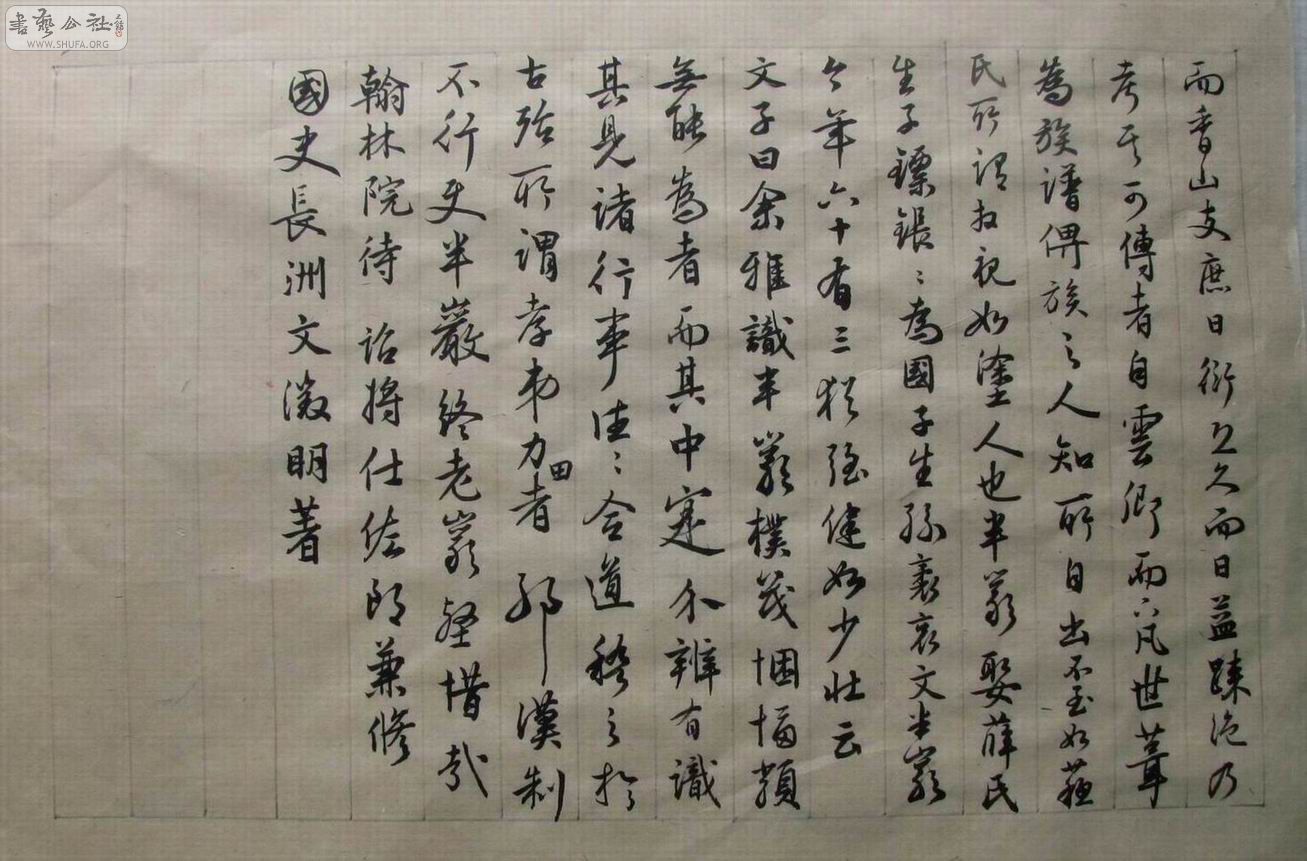 而香山支庶日衍且久而日益疎逖乃
考其可傳者自雲卿而下凡世葺
為族譜俾族之人知所自出不至如蘇
氏所謂相視如塗人也半巖娶薛氏
生子鏢鋹鋹為國子生孫袠衮文半巖
今年六十有三猶強健如少壯云
文子曰余雅識半巖樸茂悃愊類
無能為者而其中寔介辨有識
其見諸行事往往合道稽之於
古殆所謂孝弟力田者耶漢制
不行使半巖終老巖壑惜哉
翰林院待詔將仕佐郎兼修
國史長洲文徵明著
書藝公社
WWW.SHUFA.ORG